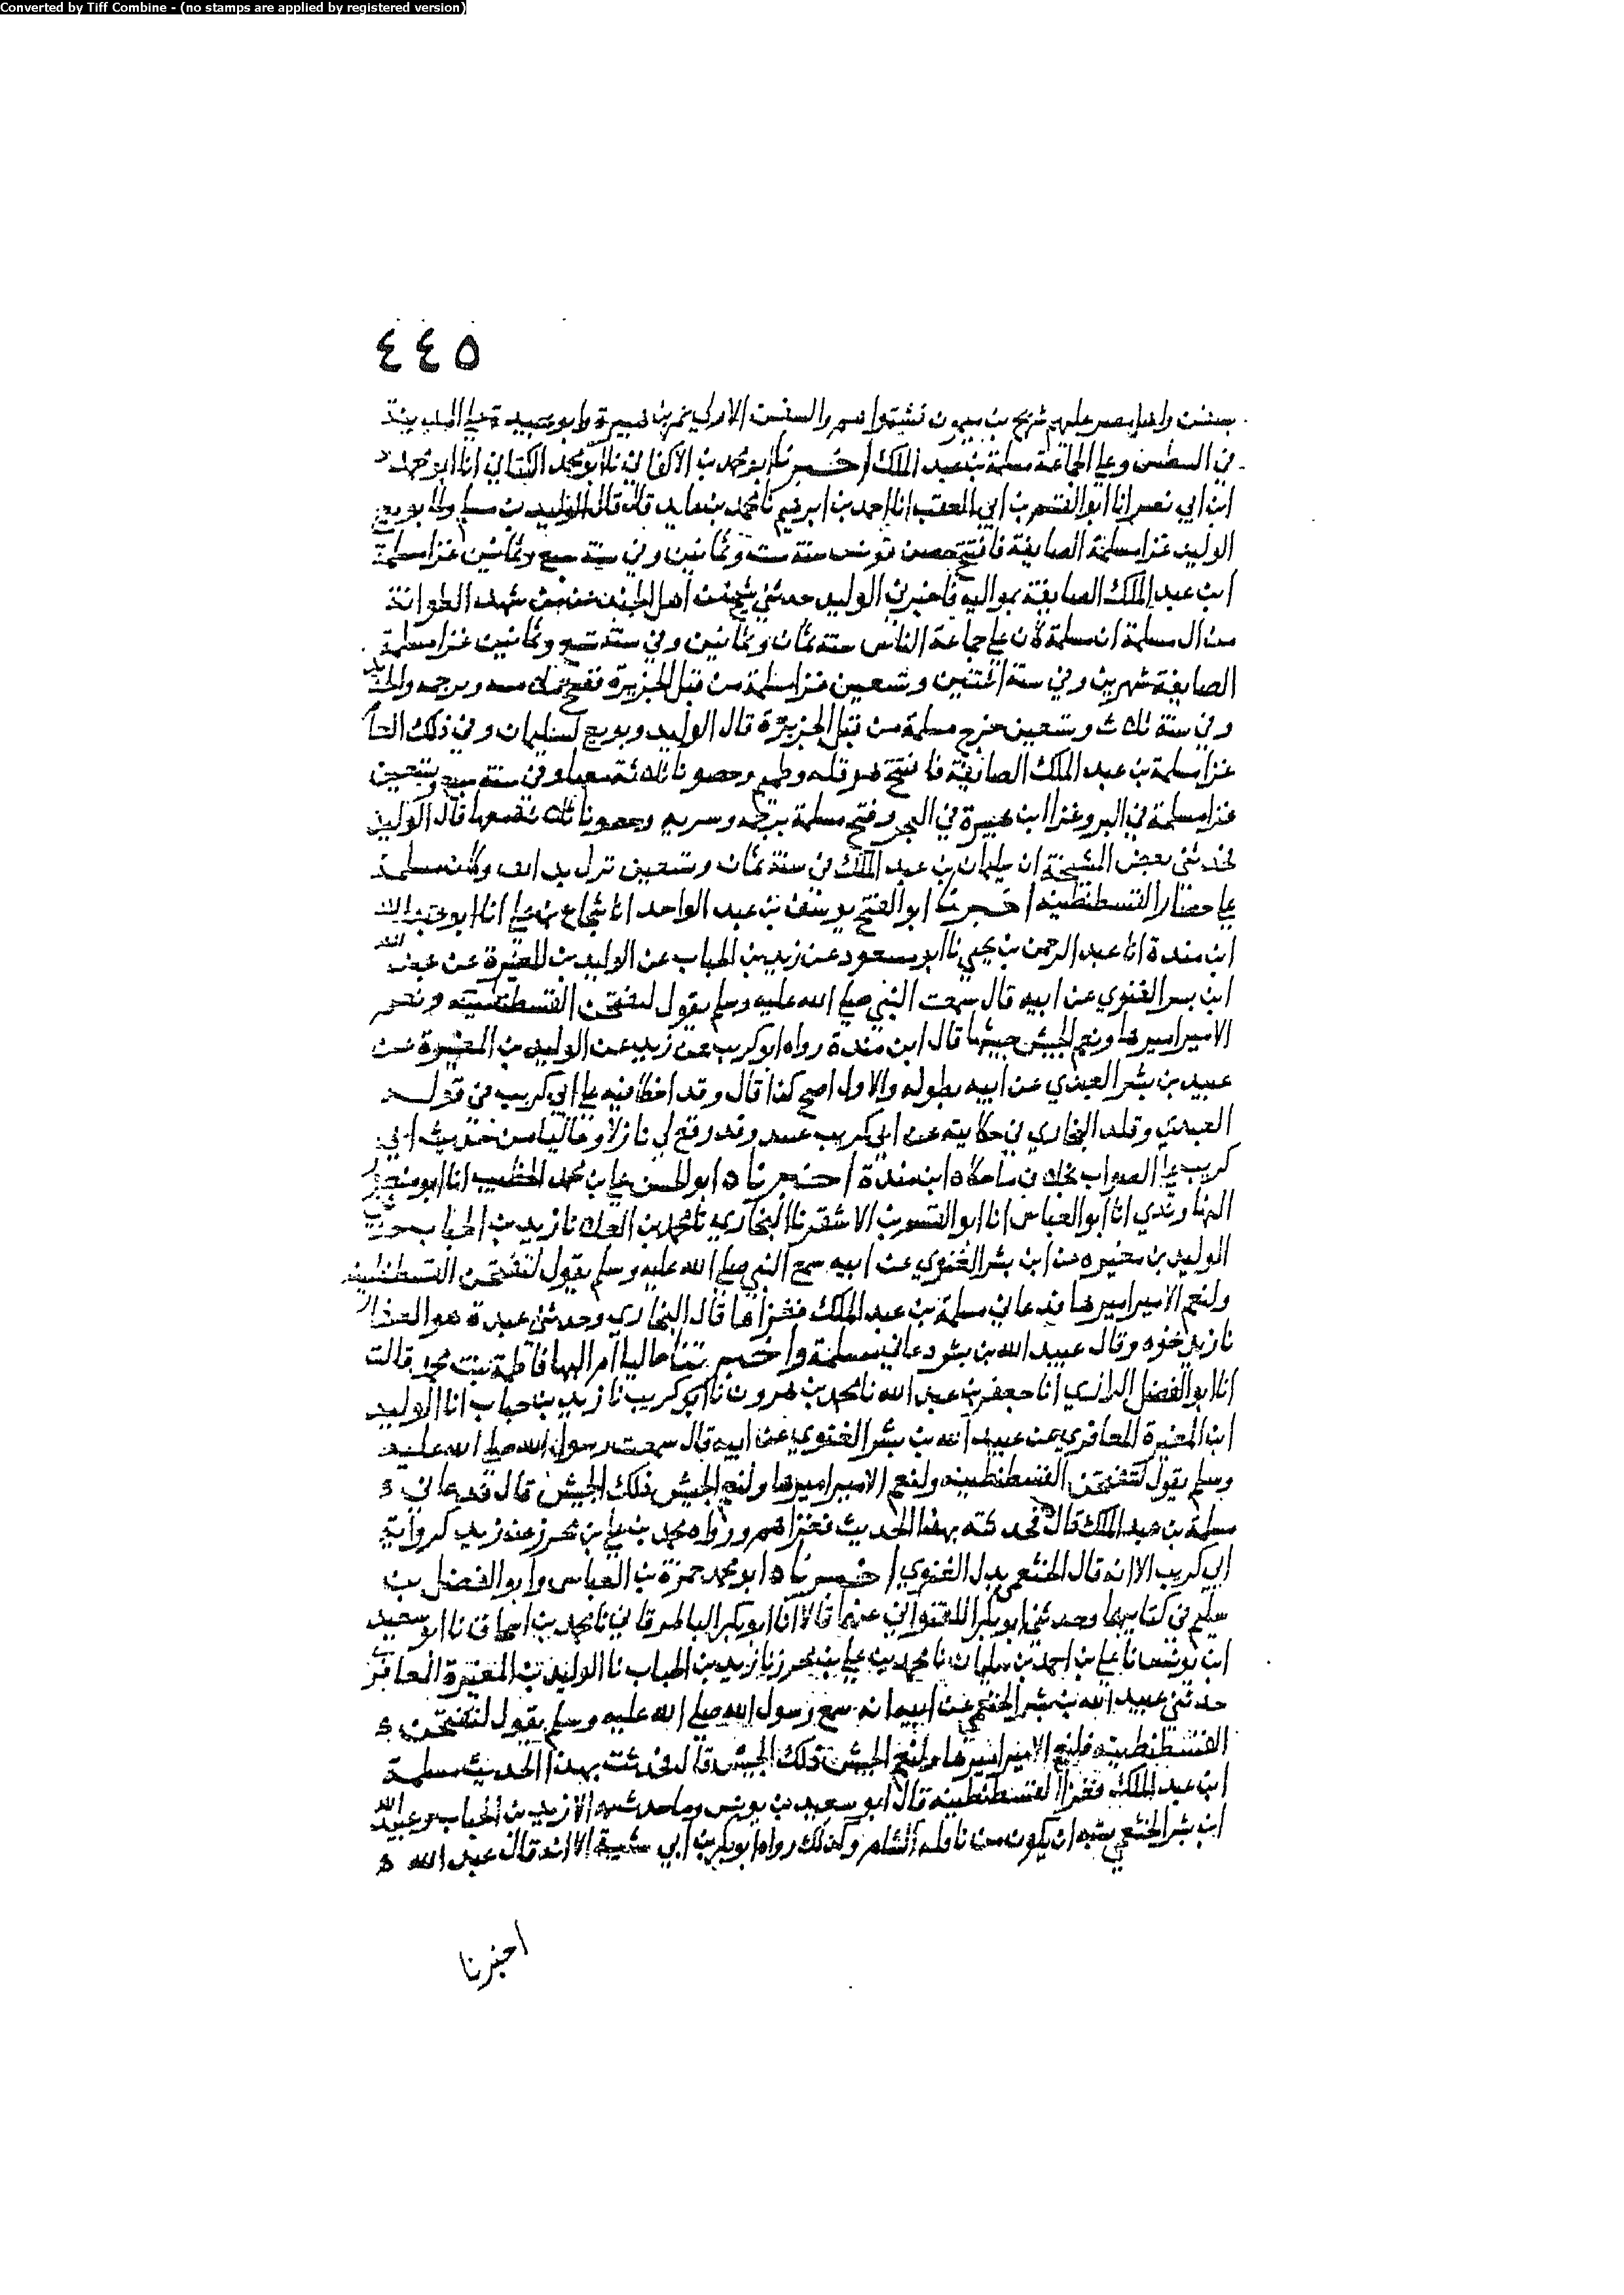 Converted by Tiff Combine - (no stamps are applied by registered version)
٤٤٥
واهل مصر عليهم شريح بن ميمون فشتوا والسفن الاولى عمر بن هبيرة وابو عبيدة على المدينة
في السطين وعلى الجماعة مسلمة بن عبد الملك اخبرنا ابو محمد بن الاكفاني نا ابو محمد الكتاني انا ابو محمد
ابن ابي نصر انا ابو القسم بن ابي العقب انا احمد بن ابرهيم نا محمد بن عايد قال قال الوليد بن مسلم ولما بويع
الوليد غزا مسلمة الصايفة فافتتح حصن تونس سنة ست وثمانين وفي سنة سبع وثمانين غزا مسلمة
ابن عبد الملك الصايفة بمواليه فاخبرني الوليد حدثني شيخ من اهل الجند عن من شهد الطوانة
من ال مسلمة ان مسلمة كان على جماعة الناس سنة ثمان وثمانين وفي سنة تسع وثمانين غزا مسلمة
الصايفة شهرين وفي سنة اثنتين وتسعين غزا مسلمة من قبل الجزيرة ففتح
وفي سنة ثلاث وتسعين خرج مسلمة من قبل الجزيرة قال الوليد وبويع لسليمان وفي ذلك العام
غزا مسلمة بن عبد الملك الصايفة فافتتح وحصونا ثلاثة معها وفي سنة سبع وتسعين
غزا مسلمة في البر وغزا ابن هبيرة في البحر وفتح مسلمة برجمه وحصونا ثلاثة معها قال الوليد
فحدثني بعض المشيخة ان سليمان بن عبد الملك في سنة ثمان وتسعين نزل بدابق وكان مسلمة
على حصار القسطنطينه اخبرنا ابو الفتح يوسف بن عبد الواحد انا شجاع بن علي انا ابو عبد الله
ابن مندة انا عبد الرحمن بن يحيى نا ابو مسعود عن زيد بن الحباب عن الوليد بن المغيرة عن عبد الله
ابن بسر الغنوي عن ابيه قال سمعت النبي صلى الله عليه وسلم يقول لتفتحن القسطنطينيه ونعم
الامير اميرها ونعم الجيش جيشها قال ابن مندة رواه ابو كريب عن زيد عن الوليد بن المغيرة عن
عبيد بن بشر العبدي عن ابيه بطوله والاول اصح كذا قال وقد اخطا فيه على ابي كريب في قوله
العبدي وقلد البخاري في حكايته عن ابي كريب عبيد وقد وقع لي نازلا وعاليا من حديث ابي
كريب على الصواب بخلاف ما حكاه ابن مندة اخبرناه ابو الحسن علي بن محمد الخطيب انا ابو منصور
النهاوندي انا ابو العباس انا ابو القسم بن الاشقر نا البخاري نا محمد بن العلاء نا زيد بن الحباب حدثني
الوليد بن مغيره عن ابن بشر الغنوي عن ابيه سمع النبي صلى الله عليه وسلم يقول لتفتحن القسطنطينيه
ولنعم الامير اميرها فدعاني مسلمة بن عبد الملك فغزاها قال البخاري وحدثني عبدة هو الصفار
نا زيد نحوه وقال عبيد الله بن بشر ودعاني مسلمة واخبرتنا عاليا ام البها فاطمة بنت محمد قالت
انا ابو الفضل الرازي انا جعفر بن عبد الله نا محمد بن هرون نا ابو كريب نا زيد بن حباب انا الوليد
ابن المغيرة المعافري عن عبيد الله بن بشر الغنوي عن ابيه قال سمعت رسول الله صلى الله عليه
وسلم يقول لتفتحن القسطنطينه ولنعم الامير اميرها ولنعم الجيش ذلك الجيش قال فدعاني
مسلمة بن عبد الملك قال فحدثته بهذا الحديث فغزاهم ورواه محمد بن علي بن محرز عن زيد كرواية
ابي كريب الا انه قال الخثعمي بدل الغنوي اخبرناه ابو محمد حمزة بن العباس وابو الفضل بن
سليم في كتابيهما وحدثني ابو بكر اللفتواني عنهما قالا انا ابو بكر الباطرقاني نا محمد بن اسحاق نا ابو سعيد
ابن يونس نا علي بن احمد بن سليمان نا محمد بن علي بن محرز نا زيد بن الحباب نا الوليد بن المغيرة المعافري
حدثني عبيد الله بن بشر الخثعمي عن ابيه انه سمع رسول الله صلى الله عليه وسلم يقول لتفتحن
القسطنطينه فلنعم الامير اميرها ولنعم الجيش ذلك الجيش قال فحدثت بهذا الحديث مسلمة
ابن عبد الملك فغزا القسطنطينه قال ابو سعيد بن يونس وما حدث به الا زيد بن الحباب وعبيد الله
ابن بشر الخثعمي يشبه ان يكون من ناقله الشام وكذلك رواه ابو بكر بن ابي شيبة الا انه قال عبد الله
اخبرنا